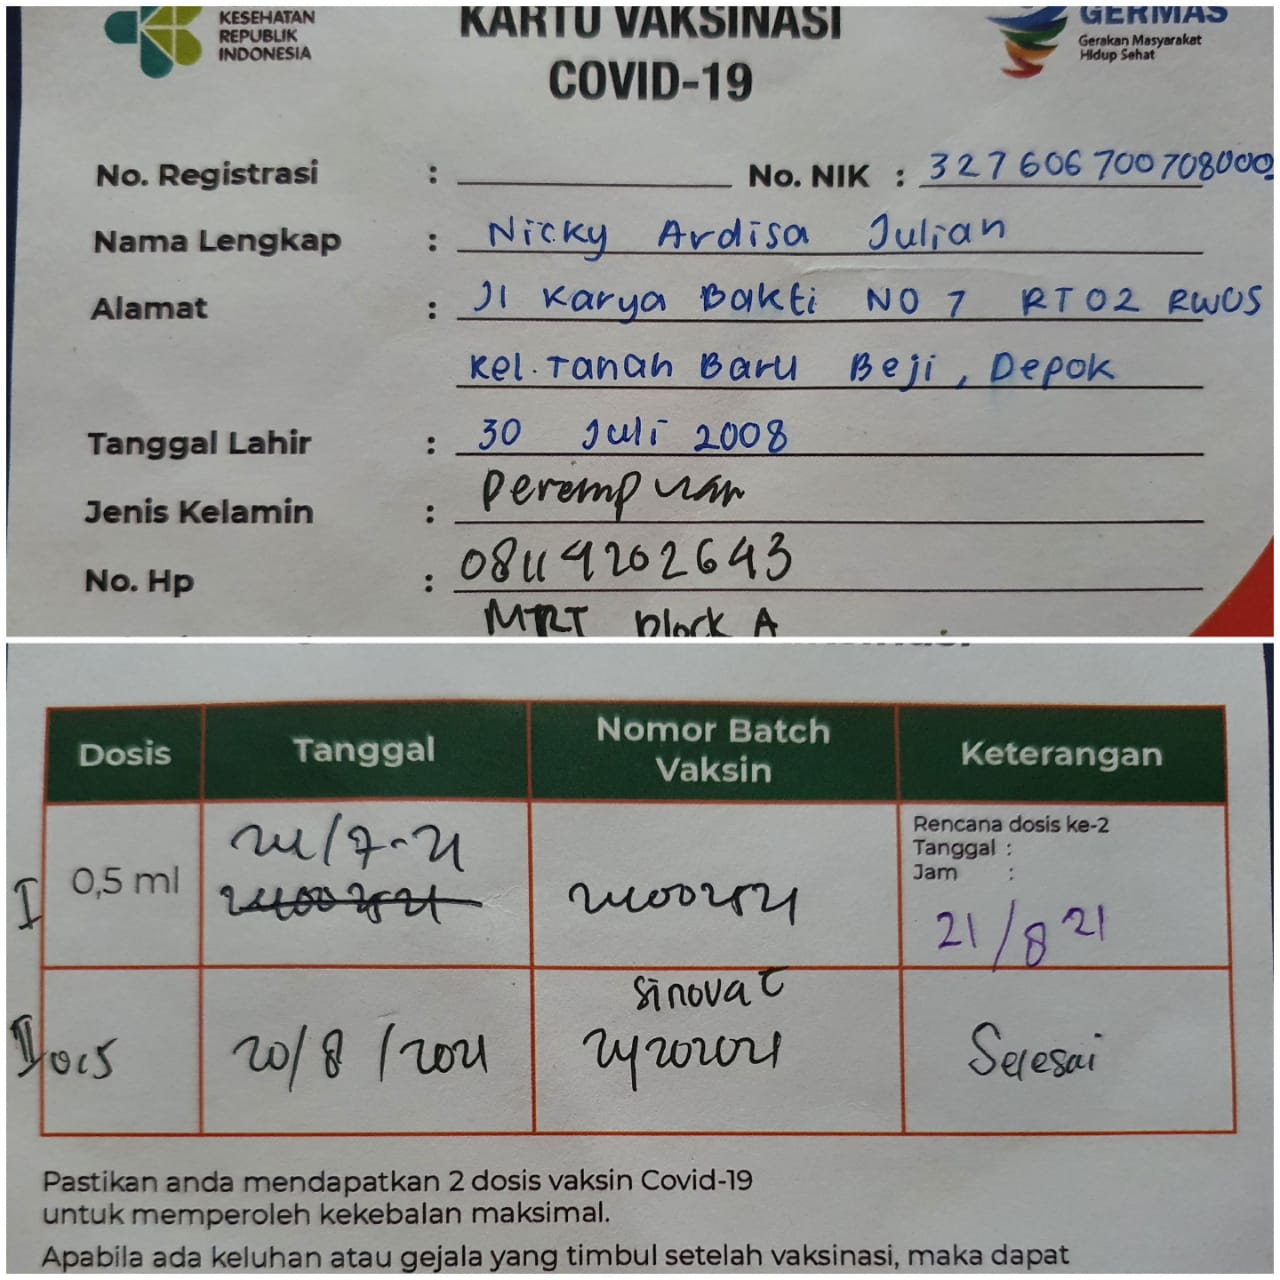 KESEHATAN
REPUBLIK
INDONESIA
KARTU VAKSINASI
COVID-19
GERMAS
Gerakan Masyarakat
Hidup Sehat
No. Registrasi : No. NIK : 327606700708000
Nama Lengkap : Nicky Ardisa Julian
Alamat : Jl Karya Bakti NO 7 RT02 RW05
Kel. Tanah Baru Beji, Depok
Tanggal Lahir : 30 Juli 2008
Jenis Kelamin : Perempuan
No. Hp : 08114202643
MRT Block A
Dosis Tanggal Nomor Batch Vaksin Keterangan
Rencana dosis ke-2
Tanggal :
Jam :
I 0,5 ml 24/7-21 24002521 21/8 21
Sinovac
II 0,5 20/8/2021 Selesai
Pastikan anda mendapatkan 2 dosis vaksin Covid-19
untuk memperoleh kekebalan maksimal.
Apabila ada keluhan atau gejala yang timbul setelah vaksinasi, maka dapat